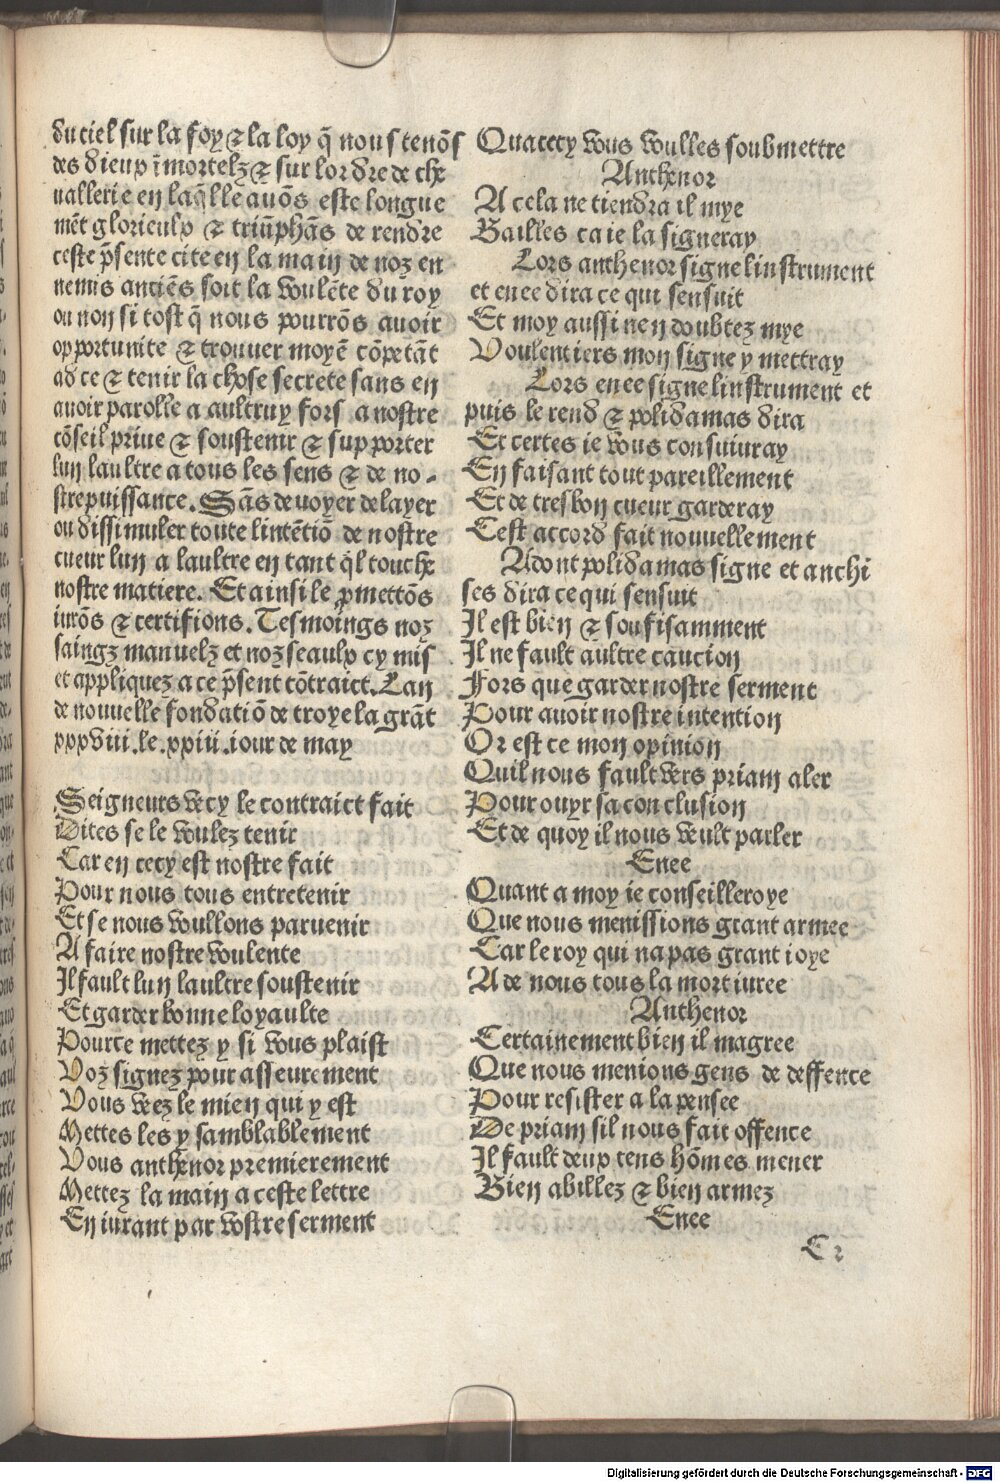 du ciel sur la foy ⁊ la loy q̃ nous tenõs
des dieux ĩmortelz ⁊ sur lordre de che
uallerie en laq̃lle auõs este longue
mẽt glorieulx ⁊ triũphãs de rendre
ceste p̃sente cite en la main de noz en
nemis anciẽs soit la voulẽte du roy
ou non si tost q̃ nous pourrõs auoir
opportunite ⁊ trouuer moyẽ cõpetãt
ad ce ⁊ tenir la chose secrete sans en
auoir parolle a aultruy fors a nostre
cõseil priue ⁊ soustenir ⁊ supporter
lun laultre a tous les sens ⁊ de no-
stre puissance. Sãs deuoyer delayer
ou dissimuler toute lintẽtiõ de nostre
cueur lun a laultre en tant q̃l touche
nostre matiere. Et ainsi le ꝓmettõs
iurõs ⁊ certifions. Tesmoings noz
saingz manuelz et noz seaulx cy mis
et appliquez a ce p̃sent cõtraict. Lan
de nouuelle fondatiõ de troye la grãt
xxxviii. le. xxiii. iour de may
Seigneurs vecy le contraict fait
Dites se le voulez tenir
Car en cecy est nostre fait
Pour nous tous entretenir
Et se nous voullons paruenir
A faire nostre voulente
Il fault lun laultre soustenir
Et garder bonne loyaulte
Pource mettez y si vous plaist
Voz signez pour asseurement
Vous veez le mien qui y est
Mettes les y samblablement
Vous anthenor premierement
Mettez la main a ceste lettre
En iurant par vostre serment
Qua cecy vous voulles soubmettre
Anthenor
A cela ne tiendra il mye
Bailles ca ie la signeray
Lors anthenor signe linstrument
et enee dira ce qui sensuit
Et moy aussi nen doubtez mye
Voulentiers mon signe y mettray
Lors enee signe linstrument et
puis le rend ⁊ polidamas dira
Et certes ie vous consuiuray
En faisant tout pareillement
Et de tresbon cueur garderay
Cest accord fait nouuellement
Adont polidamas signe et anchi
ses dira ce qui sensuit
Il est bien ⁊ soufisamment
Il ne fault aultre caucion
Fors que garder nostre serment
Pour auoir nostre intention
Or est ce mon opinion
Quil nous fault vers priam aler
Pour ouyr sa conclusion
Et de quoy il nous veult parler
Enee
Quant a moy ie conseilleroye
Que nous menissions grant armee
Car le roy qui na pas grant ioye
A de nous tous la mort iuree
Anthenor
Certainement bien il magree
Que nous menions gens de deffence
Pour resister a la pensee
De priam sil nous fait offence
Il fault deux cens hõmes mener
Bien abillez ⁊ bien armez
Enee
C 2
Digitalisierung gefördert durch die Deutsche Forschungsgemeinschaft - DFG